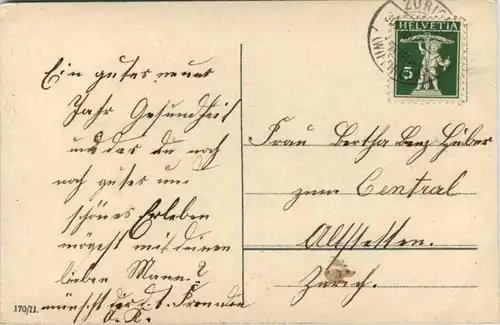 Ein gutes neues
Jahr Gesundheit
und das du noch
noch gutes und
schönes Erleben
mögest mit deinen
lieben Mann
wünscht dir d. t. Freundin
170/II.
ZÜRICH
HELVETIA
5
Frau Bertha Benz Huber
zum Central
Altstetten.
Zürich.